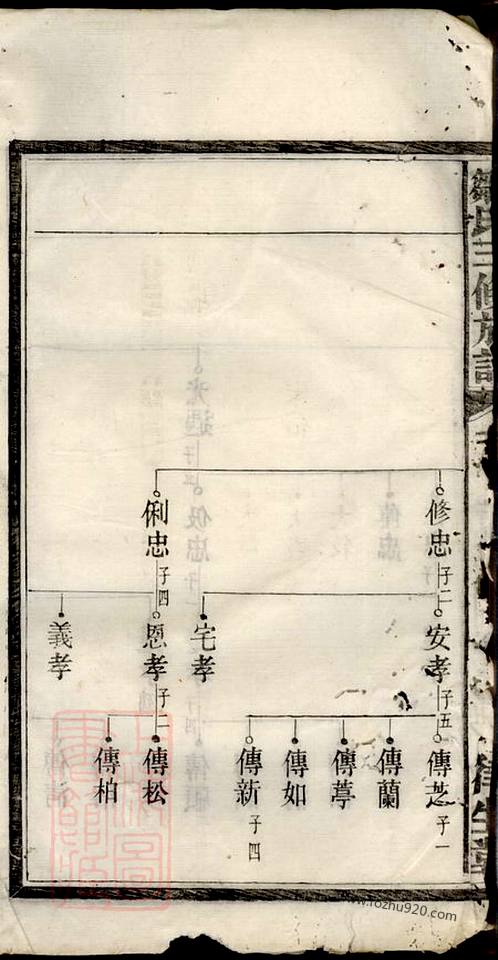 鄒氏三修族譜
修忠
子二
俐忠
子四
安孝
子五
宅孝
恩孝
子二
義孝
傳
子一
傳蘭
傳葶
傳如
傳新
子四
傳松
傳柏
www.rozhu920.com